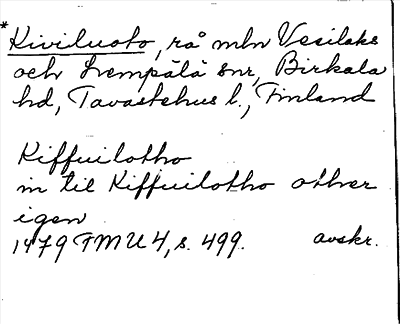 *
Kiviluoto, rå mln Vesilaks
och Lempälä snr, Birkala
hd, Tavastehus l., Finland
Kiffuilotho
in til Kiffuilotho other
igen
1479 FMU 4, s. 499. avskr.